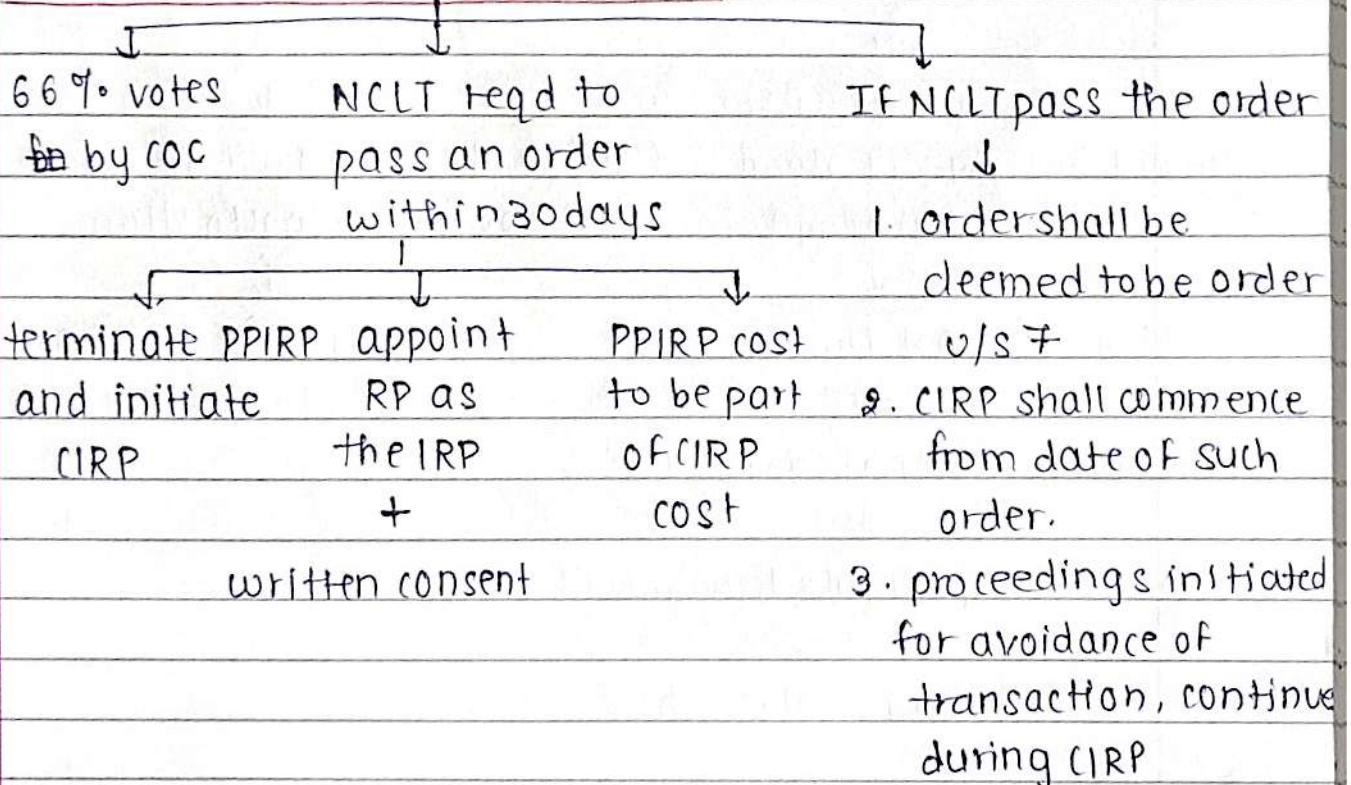 66% votes
by COC
NCLT reqd to
pass an order
within 30 days
terminate PPIRP
and initiate
CIRP
appoint
RP as
the IRP
+
written consent
PPIRP cost
to be part
of CIRP
cost
IF NCLT pass the order
1. order shall be
deemed to be order
u/s 7
2. CIRP shall commence
from date of such
order.
3. proceedings initiated
for avoidance of
transaction, continue
during CIRP